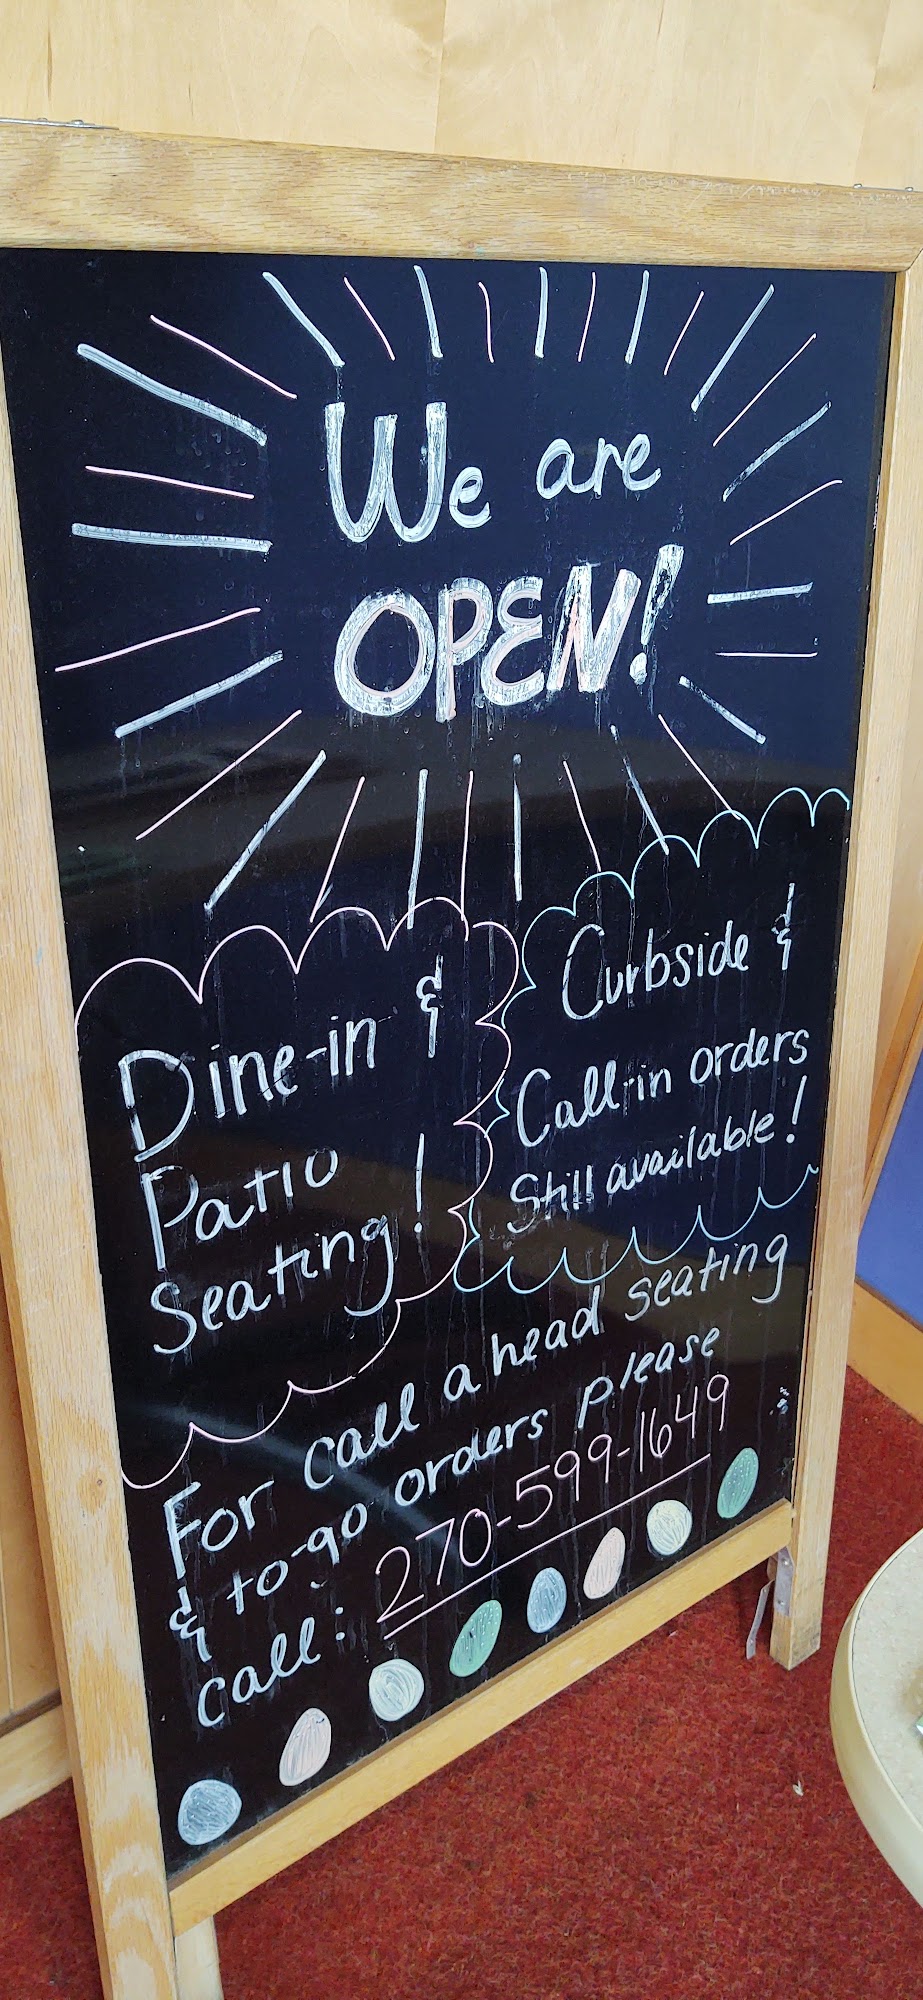 We are
OPEN!
Dine-in &
Patio
Seating!
Curbside &
Call-in orders
Still available!
For call ahead seating
& to-go orders please
call: 270-599-1649